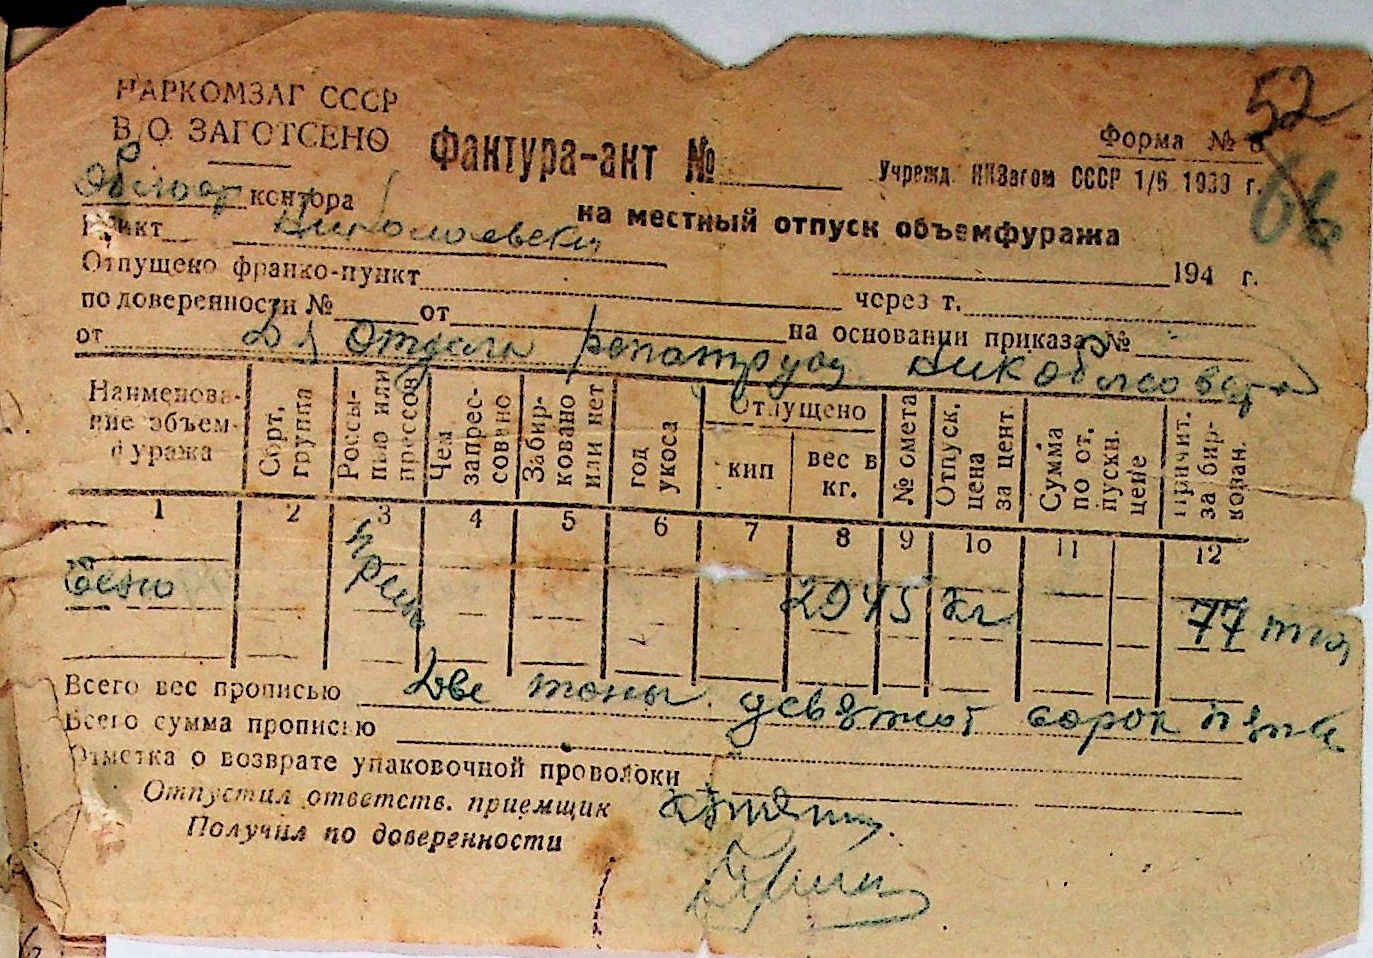 НАРКОМЗАГ СССР
В/О ЗАГОТСЕНО
52
Фактура-акт №
Форма № 8
Учрежд. НКЗагом СССР 1/6 1939 г.
66
контора
на местный отпуск объемфуража
Пункт Николаевски
Отпущено франко-пункт 194 г.
по доверенности № от через т.
от на основании приказа №
Для Отдела
Наименование объемфуража
Сорт. группа
Россыпью или прессов
Чем запрессовано
Забирковано или нет
год укоса
Отпущено
кип
вес в кг.
№ омета
Отпуск. цена за цент.
Сумма по отпускн. цене
Причит. за биркован.
1 2 3 4 5 6 7 8 9 10 11 12
Сено 2945 кг 77
Всего вес прописью Две тоны девятсот сорок пять
Всего сумма прописью
Отметка о возврате упаковочной проволоки
Отпустил ответств. приемщик
Получил по доверенности